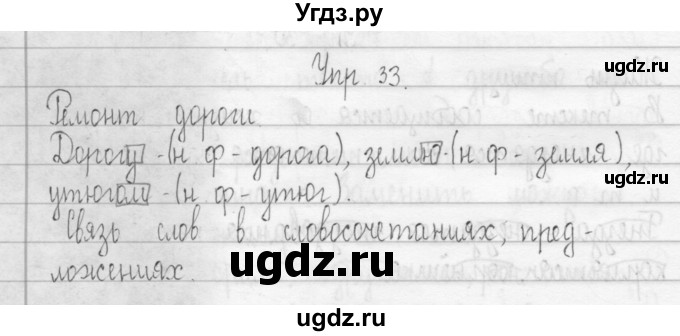 Угдз.ру
Упр. 33.
Ремонт дороги.
Дорогу -(н. ф - дорога), землю -(н. ф - земля),
утюгом -(н. ф - утюг).
Связь слов в словосочетаниях, пред
ложениях.
ugdz.ru
ugdz.ru